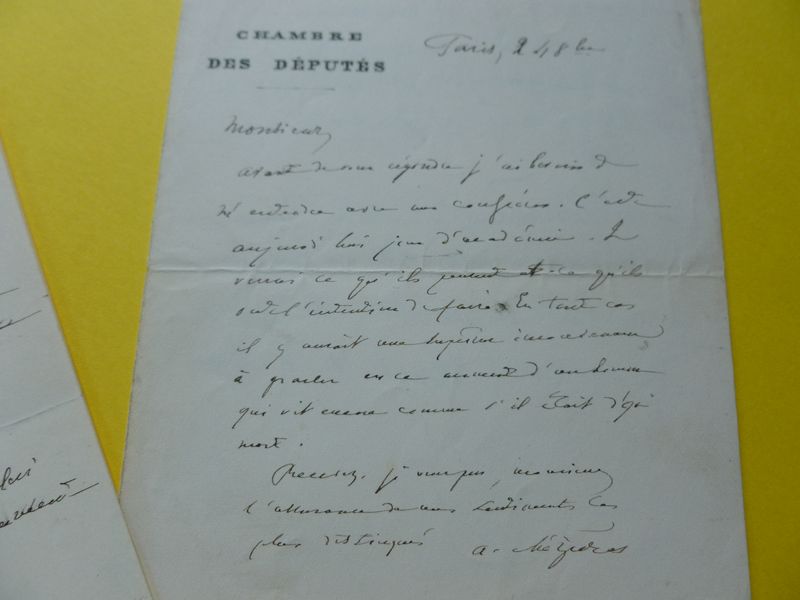 CHAMBRE
DES DÉPUTÉS
Paris, 24 8bre
Monsieur,
avant de vous répondre j'ai besoin de
m'entendre avec mes confrères. C'est
aujourd'hui jour d'académie. Je
verrai ce qu'ils pensent et ce qu'ils
ont l'intention de faire. En tout cas
il y aurait une suprême inconvenance
à parler en ce moment d'un homme
qui vit encore comme s'il était déjà
mort.
Recevez, je vous prie, monsieur
l'assurance de mes sentiments les
plus distingués
A. Mézières